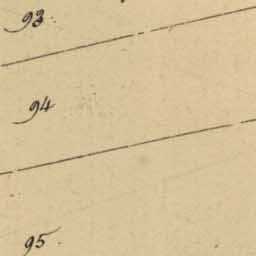 93.
94
95.